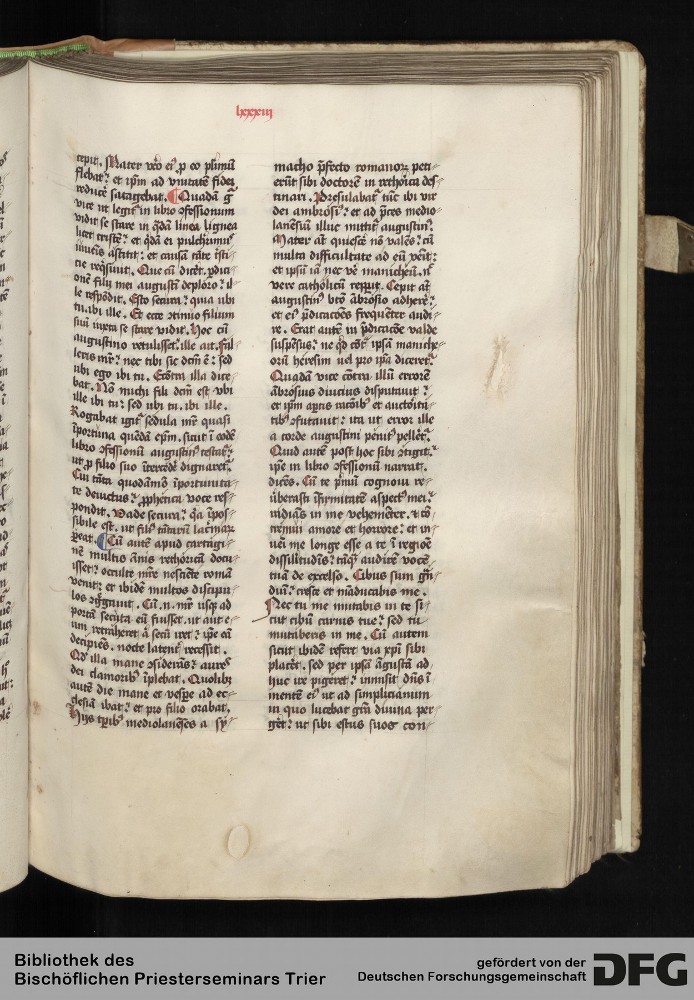 lxxxiii
cepit. Mater vero eius pro eo plurimum
flebat: et ipm ad vnitatē fidei
reducē satagebat. Quadā gͥ
vice ut legit in libro ɔfessionum
vidit se stare in qdā linea lignea
licet tristē: et qdā ei pulcherrimus
iuuenis astitit: et causā tāte tristi-
cie reqsiuit. Que cū dicēt. pdia-
onē filij mei augusti deploro: il-
le respōdit. Esto secura: quia ubi
tu. ibi ille. Et ecce ɔtinio filium
suū iuxta se stare vidit. Hoc cū
augustino retulisset. ille ait. Fal-
leris mr̄: nec tibi sic dcm ē: sed
ubi ego ibi tu. Ecōtra illa dice-
bat. Nō michi fili dcm est vbi
ille ibi tu: sed ubi tu. ibi ille.
Rogabat igit sedula mr̄ quasi
īportuna quēdā epm. sicut ī eodē
libro ɔfessionū augustin testat:
ut p filio suo ītercedē dignaret.
Cui tāta quodāmō īportunita-
te deuictus: pphetica voce res-
pondit. Vade secura: qa īpos-
sibile est. ut fili tātarū lacrimarum
pereat. Cū autē apud cartagi-
nē multis annis rethoricā docu-
isset: occulte mr̄e nesciēte romā
venit: et ibidē multos discipu-
los ɔgregauit. Cū .n. mr̄ usq ad
portā secuta eū fuisset. ut aut e-
um retraheret a secū iret: ipe eā
decipiēs. nocte latent recessit.
Qd illa mane ɔsiderās: aures
dei clamorib īplebat. Quolibet
autē die mane et vespe ad ec-
clesiā ibat: et pro filio orabat.
Hiis tpib mediolanēses a sy-
macho pfecto romanoꝝ peti-
erūt sibi doctorē in rethorica des-
tinari. Presulabat tūc ibi vir
dei ambrosi: et ad pces medio-
lanēsiū illuc mittit augustin.
Mater at quiescē nō valēs: cū
multa difficultate ad eū venit:
et ipsū iā nec vē manicheū. n
vere catholicū repperit. Cepit at
augustin bto ābrosio adherē:
et ei pdicacōes frequēter audi-
re. Erat autē in pdicacōe valde
suspēsus: ne qd cōt ipsā maniche-
orū heresim uel pro ipa diceret.
Quadā vice cōtra illū errorē
ābrosius diucius disputauit:
et ipm aptis racōib et auctoīta-
tib ɔfutauit: ita ut error ille
a corde augustini penit pelleret.
Quid autē post hoc sibi ɔtigit.
ipe in libro ɔfessionū narrat.
dicēs. Cū te pmū cognoui re-
uerberasti īfirmitatē aspect mei.
radiās in me vehemēter. & cō-
tremui amore et horrore: et in-
ueni me longe esse a te ī regiōe
dissilitudīs: tāq audirē vocē
tuā de excelso. Cibus sum grā-
diū: cresce et māducabis me.
Nec tu me mutabis in te si-
cut cibū carnis tue: sed tu
mutaberis in me. Cū autem
sicut ibidē refert via xpī sibi
placet. sed per ipsā āgustā ad
huc ire pigeret: inmisit dns ī
mentē ei ut ad simplicianum
in quo lucebat gra diuina per-
get: ut sibi estus suos con-
Bibliothek des
Bischöflichen Priesterseminars Trier
gefördert von der
Deutschen Forschungsgemeinschaft
DFG